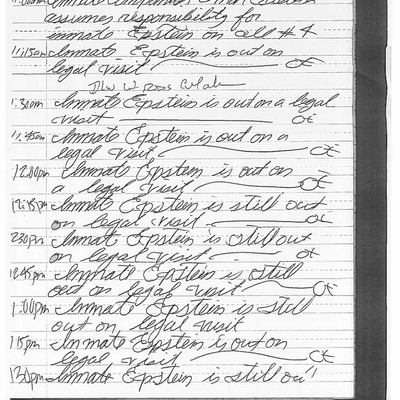 assumes responsibility for
inmate Epstein on cell #4
11:15am Inmate Epstein is out on
legal visit CE
11:30am Inmate Epstein is out on a legal
visit CE
11:45am Inmate Epstein is out on a
legal visit CE
12:00pm Inmate Epstein is out on
a legal visit CE
12:15pm Inmate Epstein is still out
on legal visit CE
230pm Inmate Epstein is still out
on legal visit CE
12:45pm Inmate Epstein is still
out on legal visit CE
1:00pm Inmate Epstein is still
out on legal visit
115pm Inmate Epstein is out on
legal visit CE
130pm Inmate Epstein is still